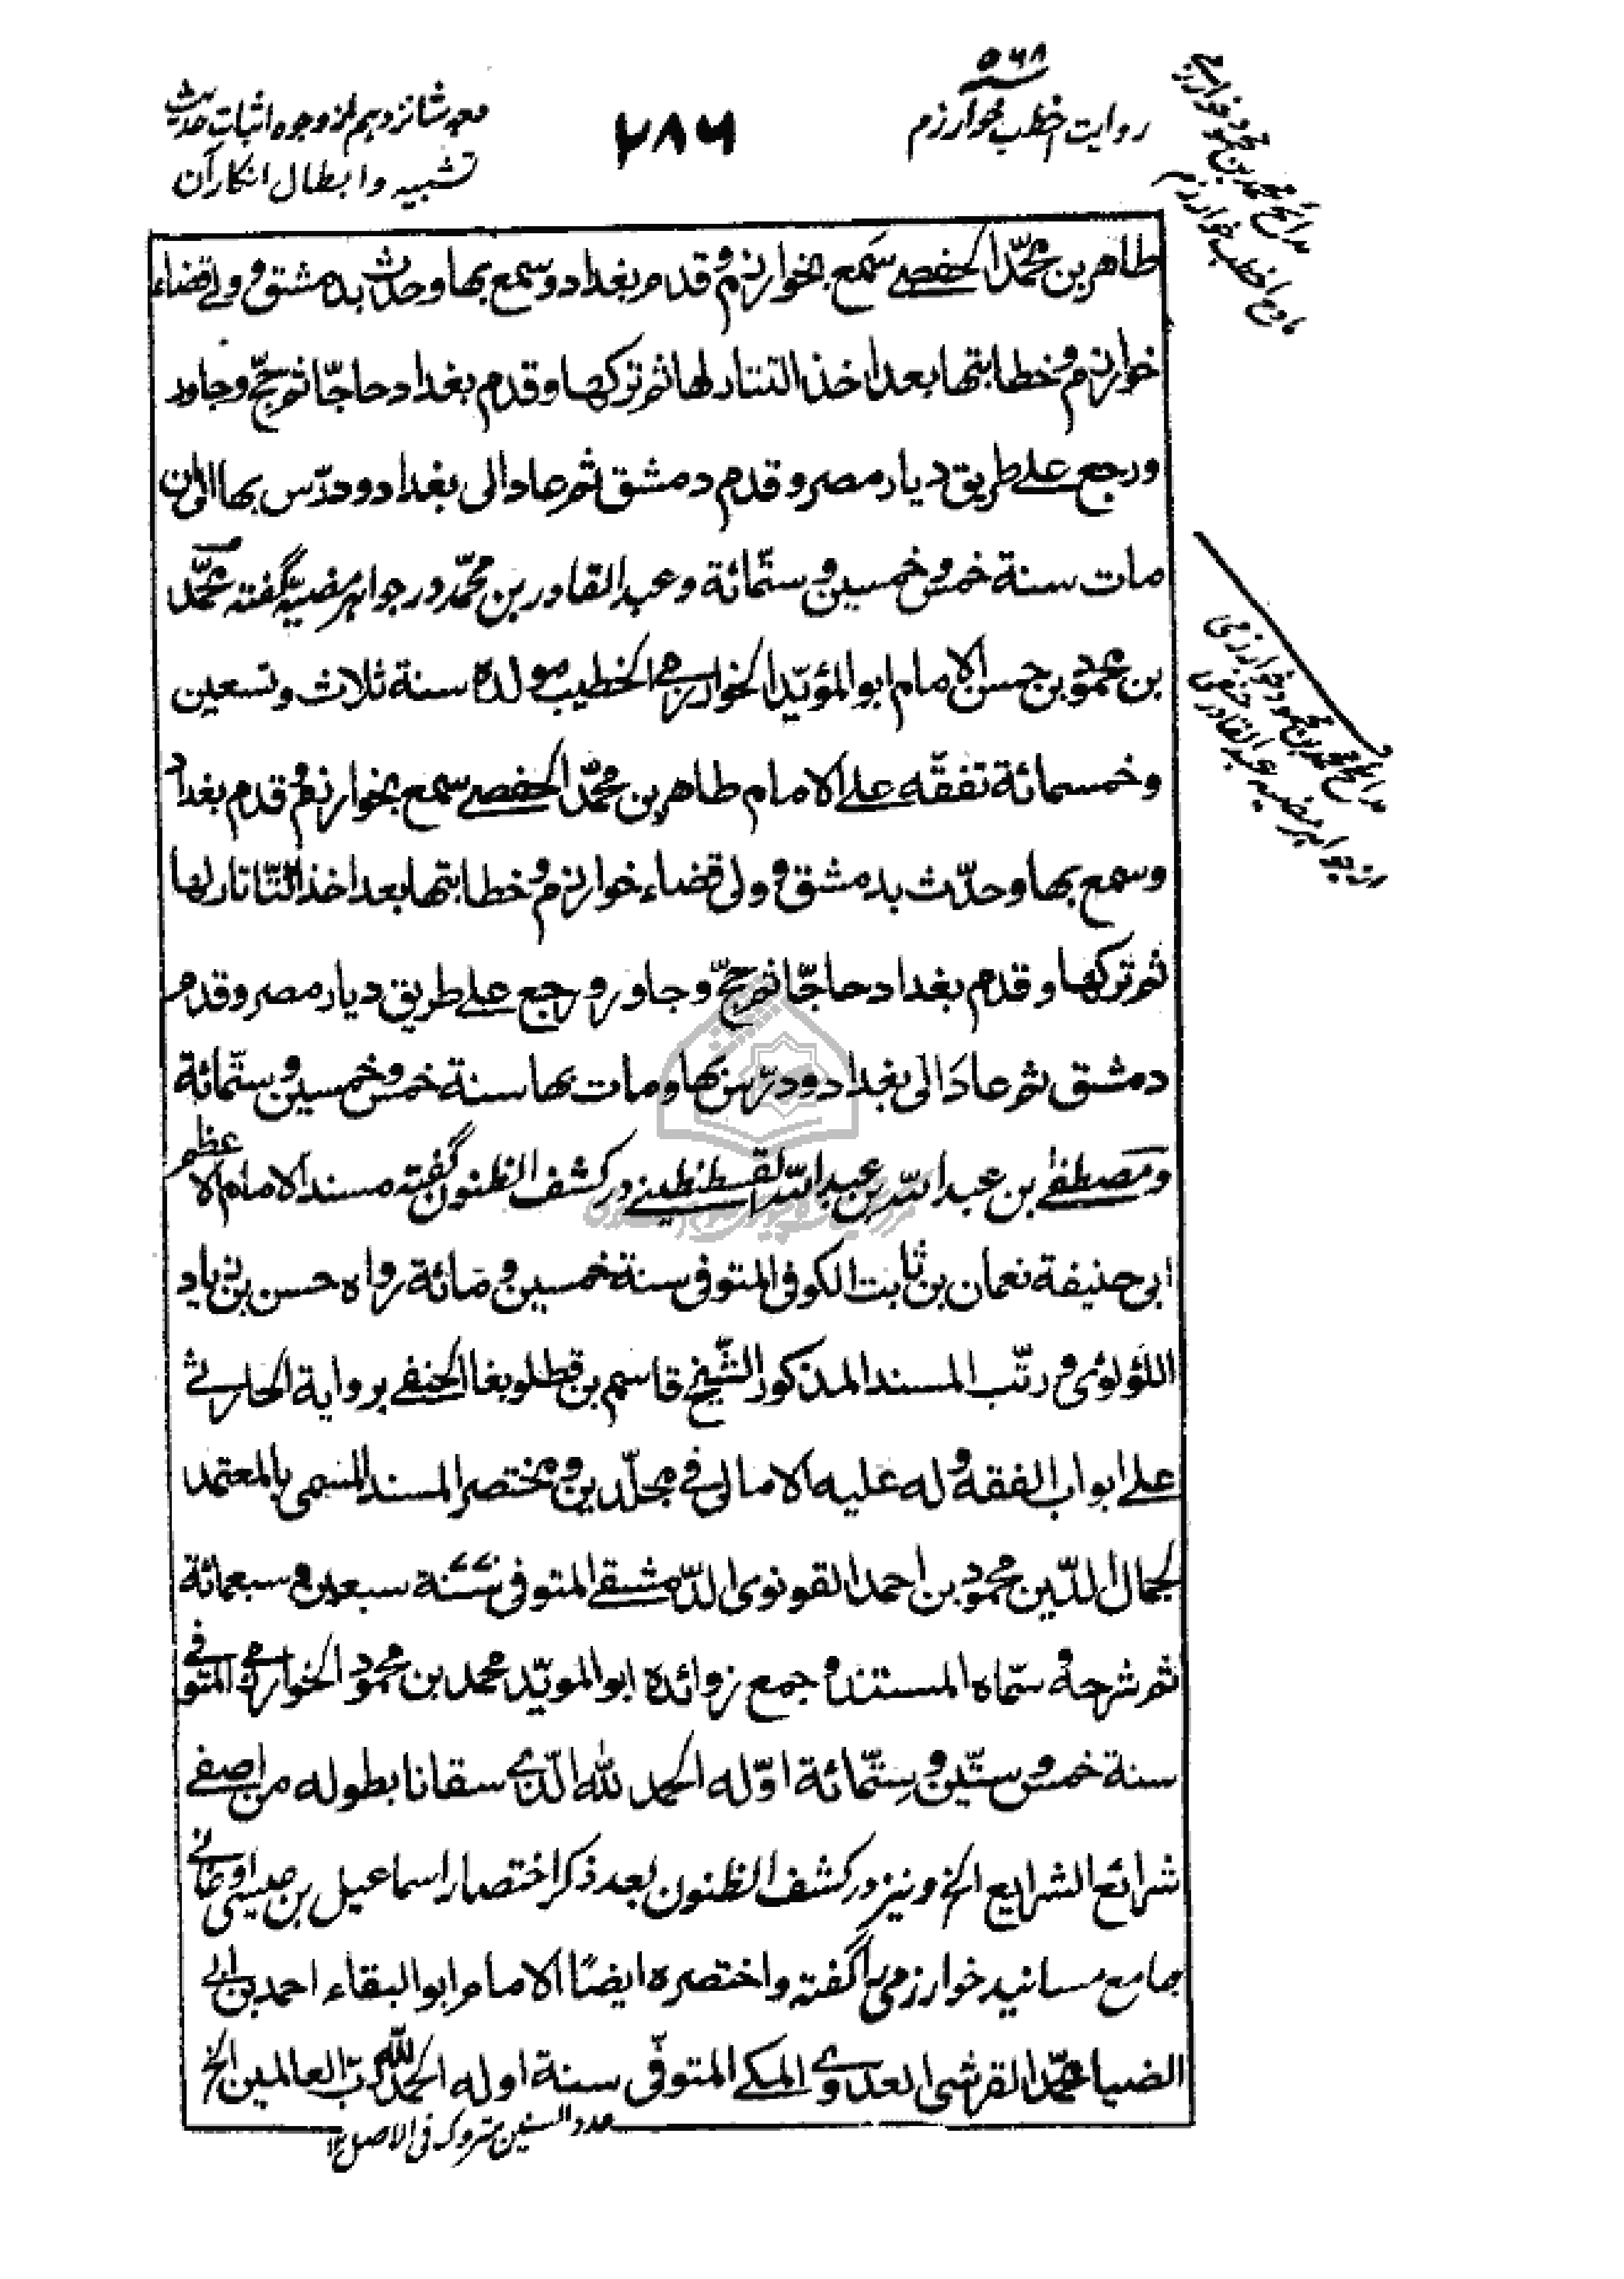 ۵۶۸
روایت اخطب خوارزم
۲۸۶
وجه شانزدهم از وجوه اثبات حدیث
تشبیه و ابطال انکار آن
مدائح محمد بن محمود خوارزمی
مادح اخطب خوارزم
طاهر بن محمّد الحفصي سَمع بخوارزم و قدم بغداد و سمع بها و حدّث بدمشق و ولي قضاء
خوارزم و خطابتها بعد اخذ التتار لها ثم تركها و قدم بغداد حاجّا ثم حجّ و جاور
و رجع على طريق ديار مصر و قدم دمشق ثم عاد الى بغداد و درّس بها الى ان
مات سنة خمس و خمسين و ستّمائة و عبد القادر بن محمّد در جواهر مضيّه گفته محمّد
بن محمود بن حسن الامام ابو المؤيّد الخوارزمي الخطيب مولده سنة ثلاث و تسعين
و خمسمائة تفقّه على الامام طاهر بن محمّد الحفصي سمع بخوارزم و قدم بغداد
و سمع بها و حدّث بدمشق و ولى قضاء خوارزم و خطابتها بعد اخذ التّاتار لها
ثم تركها و قدم بغداد حاجّا ثم حجّ و جاور و رجع على طريق ديار مصر و قدم
دمشق ثم عادَ الى بغداد و درّس بها و مات بها سنة خمس و خمسين و ستّمائة
و مصطفى بن عبد اللّه بن عبد اللّه القسطنطيني در كشف الظنون گفته مسند الامام الاعظم
ابى حنيفة نعمان بن ثابت الكوفى المتوفى سنة خمسين و مَائة رواه حسن بن زياد
اللؤلؤى و رتّب المسند المذكور الشّيخ قاسم بن قطلوبغا الحنفي برواية الحارثي
على ابواب الفقه و له عليه الامالى في مجلّدين و مختصر المسند المسمى بالمعتمد
لجمال الدّين محمود بن احمد القونوى الدّمشقي المتوفى سنة سبعين و سبعمائة
ثم شرحه و سمّاه المستند و جمع زوائده ابو المويّد محمد بن محمود الخوارزمي المتوفى
سنة خمس و ستّين و ستّمائة اوّله الحمد للّه الّذي سقانا بطوله من اصفى
شرائع الشرايع الخ و نيز در كشف الظنون بعد ذكر اختصار اسماعيل بن عيسى اوغانى
جامع مسانيد خوارزمى را گفته و اختصره ايضًا الامام ابو البقاء احمد بن ابي
الضيا محمّد القرشى العدوي المكي المتوفّى سنة اوله الحمد للّه ربّ العالمين الخ
عدد السنين متروك فى الاصل ۱۲
مدائح محمد بن محمود خوارزمی
از جواهر مضیه عبد القادر حنفی